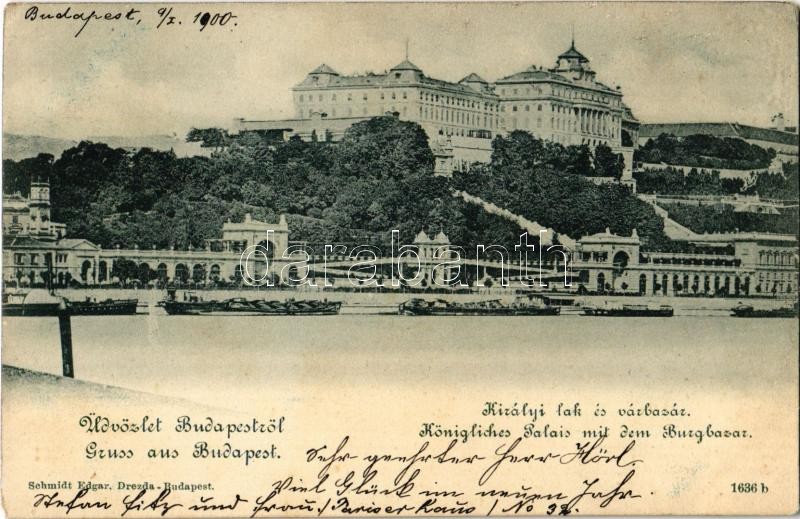 Budapest, 9/X. 1900.
darabanth
Üdvözlet Budapestről
Gruss aus Budapest.
Királyi lak és várbazár.
Königliches Palais mit dem Burgbazar.
Sehr geehrter Herr Hörl.
Viel Glück im neuen Jahr.
Schmidt Edgar, Drezda-Budapest.
1636 b
Stefan Fitz und Frau / Pariser Haus / No 32.